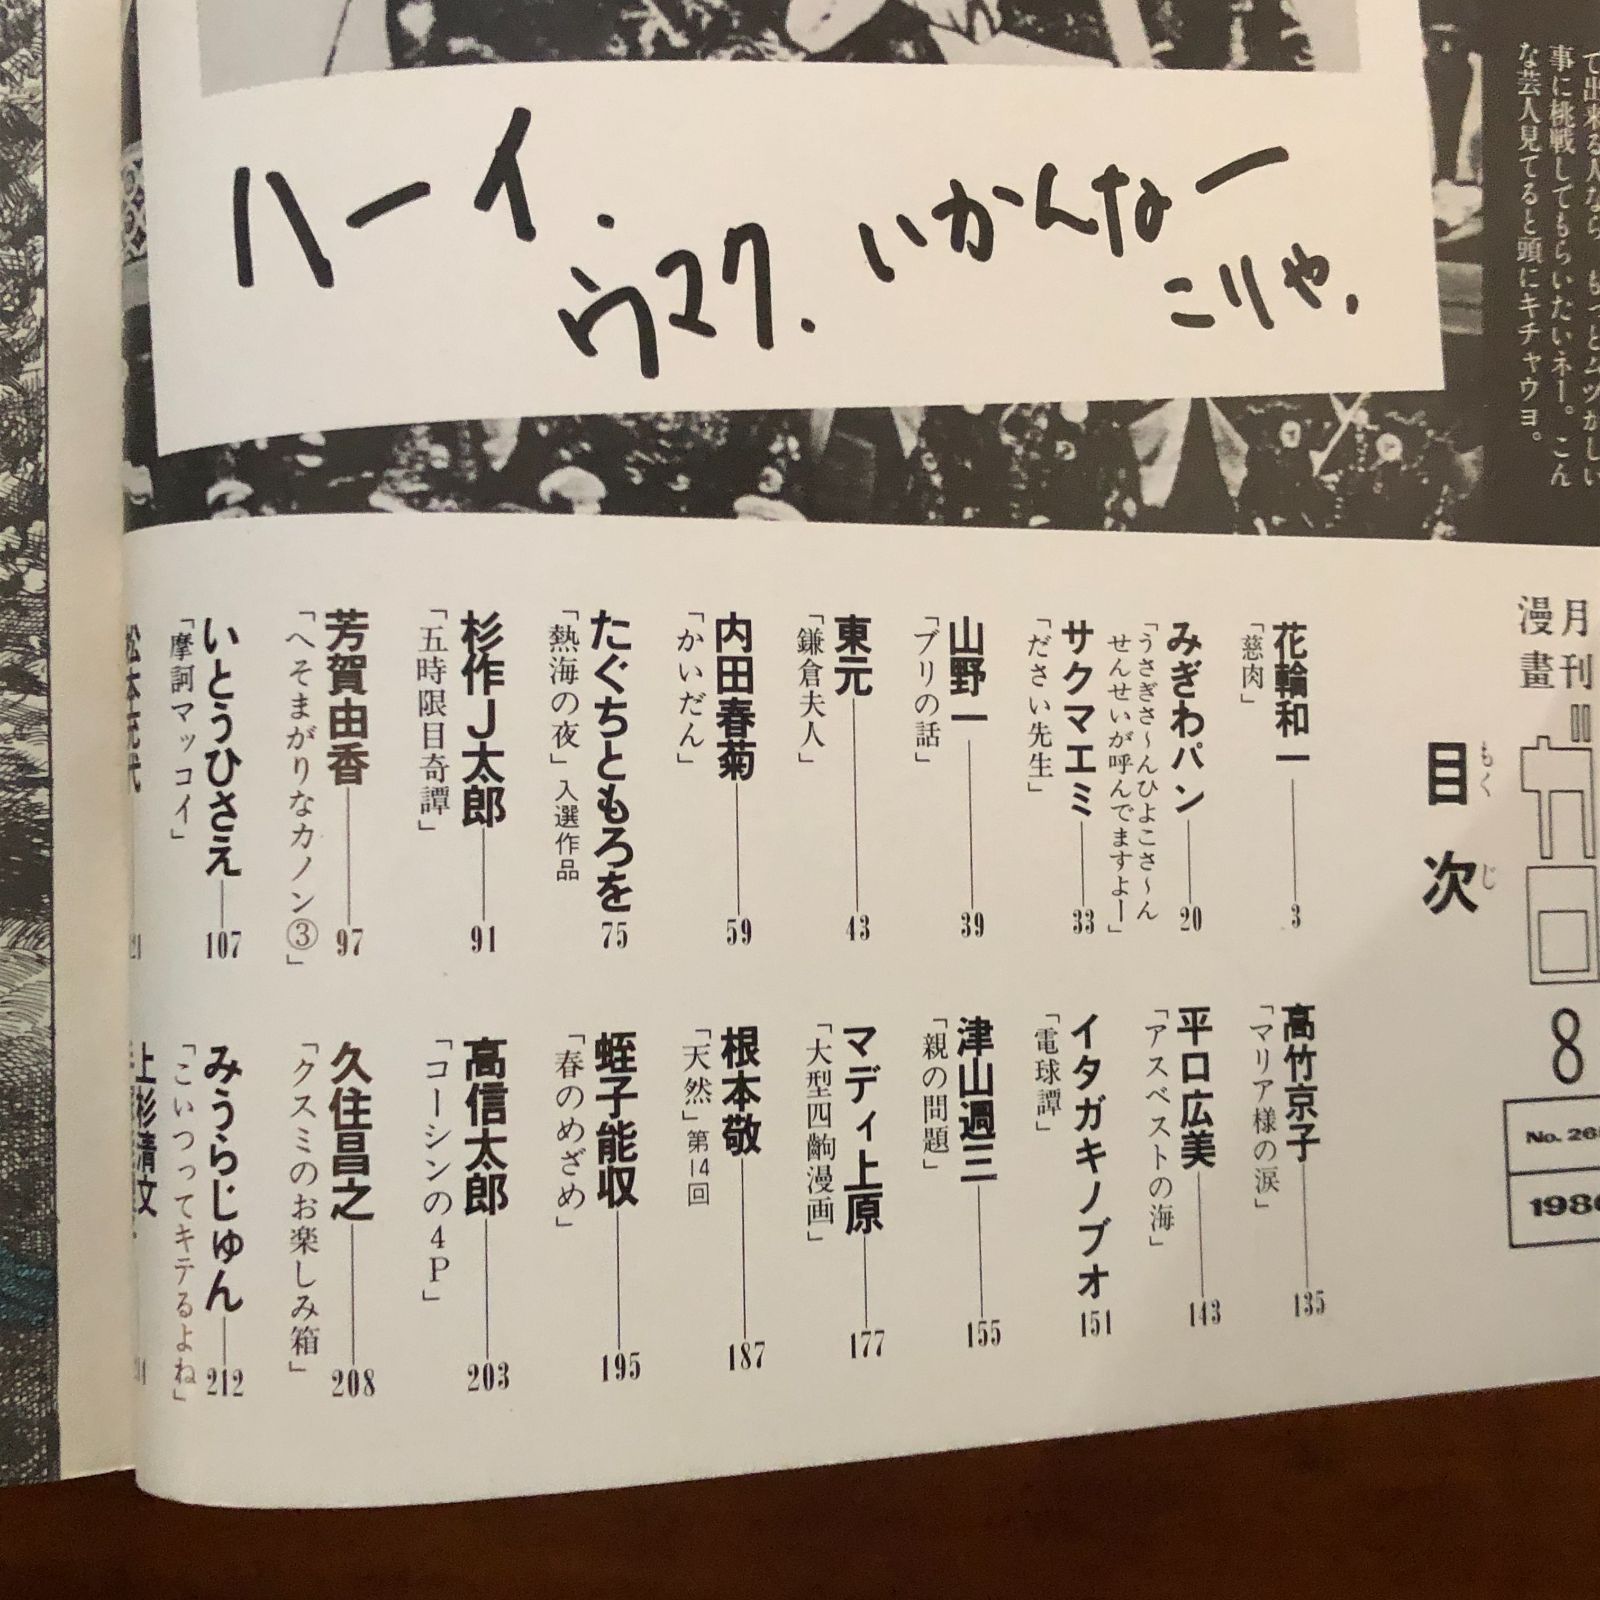 ハーイ.
ウマク.
いかんなー
こりや.
事に挑戦してもらいたいネー。こん
な芸人見てると頭にキチャウヨ。
月刊
漫畫
ガロ
8
1986
目次
もくじ
花輪和一 3
「慈肉」
みぎわパン 20
「うさぎさ〜んひよこさ〜ん
せんせいが呼んでますよー」
サクマエミ 33
「ださい先生」
山野一 39
「ブリの話」
東元 43
「鎌倉夫人」
内田春菊 59
「かいだん」
たぐちともろを 75
「熱海の夜」入選作品
杉作J太郎 91
「五時限目奇譚」
芳賀由香 97
「へそまがりなカノン③」
いとうひさえ 107
「摩訶マッコイ」
高竹京子 135
「マリア様の涙」
平口広美 143
「アスベストの海」
イタガキノブオ 151
「電球譚」
津山過三 155
「親の問題」
マディ上原 177
「大型四齣漫画」
根本敬 187
「天然」第14回
蛭子能収 195
「春のめざめ」
高信太郎 203
「コーシンの4P」
久住昌之 208
「クスミのお楽しみ箱」
みうらじゅん 212
「こいつってキテるよね」